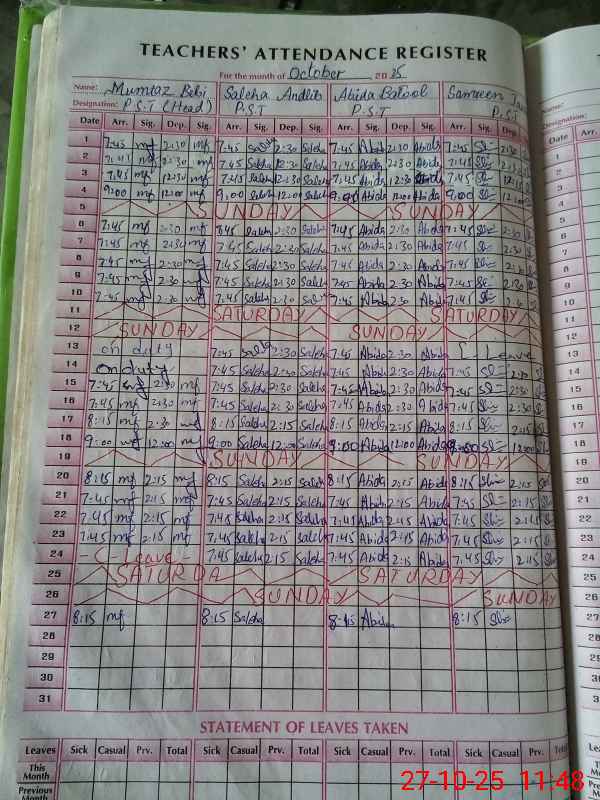 TEACHERS' ATTENDANCE REGISTER
For the month of October 2025
Name: Mumtaz Bibi Saleha Andlib Abida Batool Samreen
Designation: P.S.T (Head) P.S.T P.S.T P.S.T
Date Arr. Sig. Dep. Sig. Arr. Sig. Dep. Sig. Arr. Sig. Dep. Sig. Arr. Sig. Dep.
1 7:45 mf 2:30 mf 7:45 Saleha 2:30 Saleha 7:45 Abida 2:30 Abida 7:45 2:30
2 7:45 mf 2:30 mf 7:45 Saleha 2:30 Saleha 7:45 Abida 2:30 Abida 7:45
3 7:45 mf 12:30 mf 7:45 Saleha 12:30 Saleha 7:45 Abida 12:30 Abida 7:45
4 9:00 mf 12:00 mf 9:00 Saleha 12:00 Saleha 9:00 Abida 12:00 Abida 9:00 12:00
5 SUNDAY SUNDAY
6 7:45 mf 2:30 mf 7:45 Saleha 2:30 Saleha 7:45 Abida 2:30 Abida 7:45 2:30
7 7:45 mf 2:30 mf 7:45 Saleha 2:30 Saleha 7:45 Abida 2:30 Abida 7:45 2:30
8 7:45 mf 2:30 mf 7:45 Saleha 2:30 Saleha 7:45 Abida 2:30 Abida 7:45 2:30
9 7:45 mf 2:30 mf 7:45 Saleha 2:30 Saleha 7:45 Abida 2:30 Abida 7:45 2:30
10 7:45 mf 2:30 mf 7:45 Saleha 2:30 Saleha 7:45 Abida 2:30 Abida 7:45 2:30
11 SATURDAY SATURDAY
12 SUNDAY SUNDAY
13 on duty 7:45 Saleha 2:30 Saleha 7:45 Abida 2:30 Abida Leave
14 on duty 7:45 Saleha 2:30 Saleha 7:45 Abida 2:30 Abida 7:45 2:30
15 7:45 mf 2:30 mf 7:45 Saleha 2:30 Saleha 7:45 Abida 2:30 Abida 7:45 2:30
16 7:45 mf 2:30 mf 7:45 Saleha 2:30 Saleha 7:45 Abida 2:30 Abida 7:45 2:30
17 8:15 mf 2:30 mf 8:15 Saleha 2:15 Saleha 8:15 Abida 2:15 Abida 8:15 2:15
18 9:00 mf 12:00 mf 9:00 Saleha 12:00 Saleha 9:00 Abida 12:00 Abida 9:00 12:00
19 SUNDAY SUNDAY
20 8:15 mf 2:15 mf 8:15 Saleha 2:15 Saleha 8:15 Abida 2:15 Abida 8:15 2:15
21 7:45 mf 2:15 mf 7:45 Saleha 2:15 Saleha 7:45 Abida 2:15 Abida 7:45 2:15
22 7:45 mf 2:15 mf 7:45 Saleha 2:15 Saleha 7:45 Abida 2:15 Abida 7:45 2:15
23 7:45 mf 2:15 mf 7:45 Saleha 2:15 Saleha 7:45 Abida 2:15 Abida 7:45 2:15
24 Leave 7:45 Saleha 2:15 Saleha 7:45 Abida 2:15 Abida 7:45 2:15
25 SATURDA SATURDAY
26 SUNDAY SUNDAY
27 8:15 mf 8:15 Saleha 8:15 Abida 8:15
28
29
30
31
STATEMENT OF LEAVES TAKEN
Leaves Sick Casual Prv. Total Sick Casual Prv. Total Sick Casual Prv. Total Sick Casual Prv. Total
This Month
Previous Month
27-10-25 11:48
Name:
Designation:
Date Arr.
1
2
3
4
5
6
7
8
9
10
11
12
13
14
15
16
17
18
19
20
21
22
23
24
25
26
27
28
29
30
31
Leaves
This Month